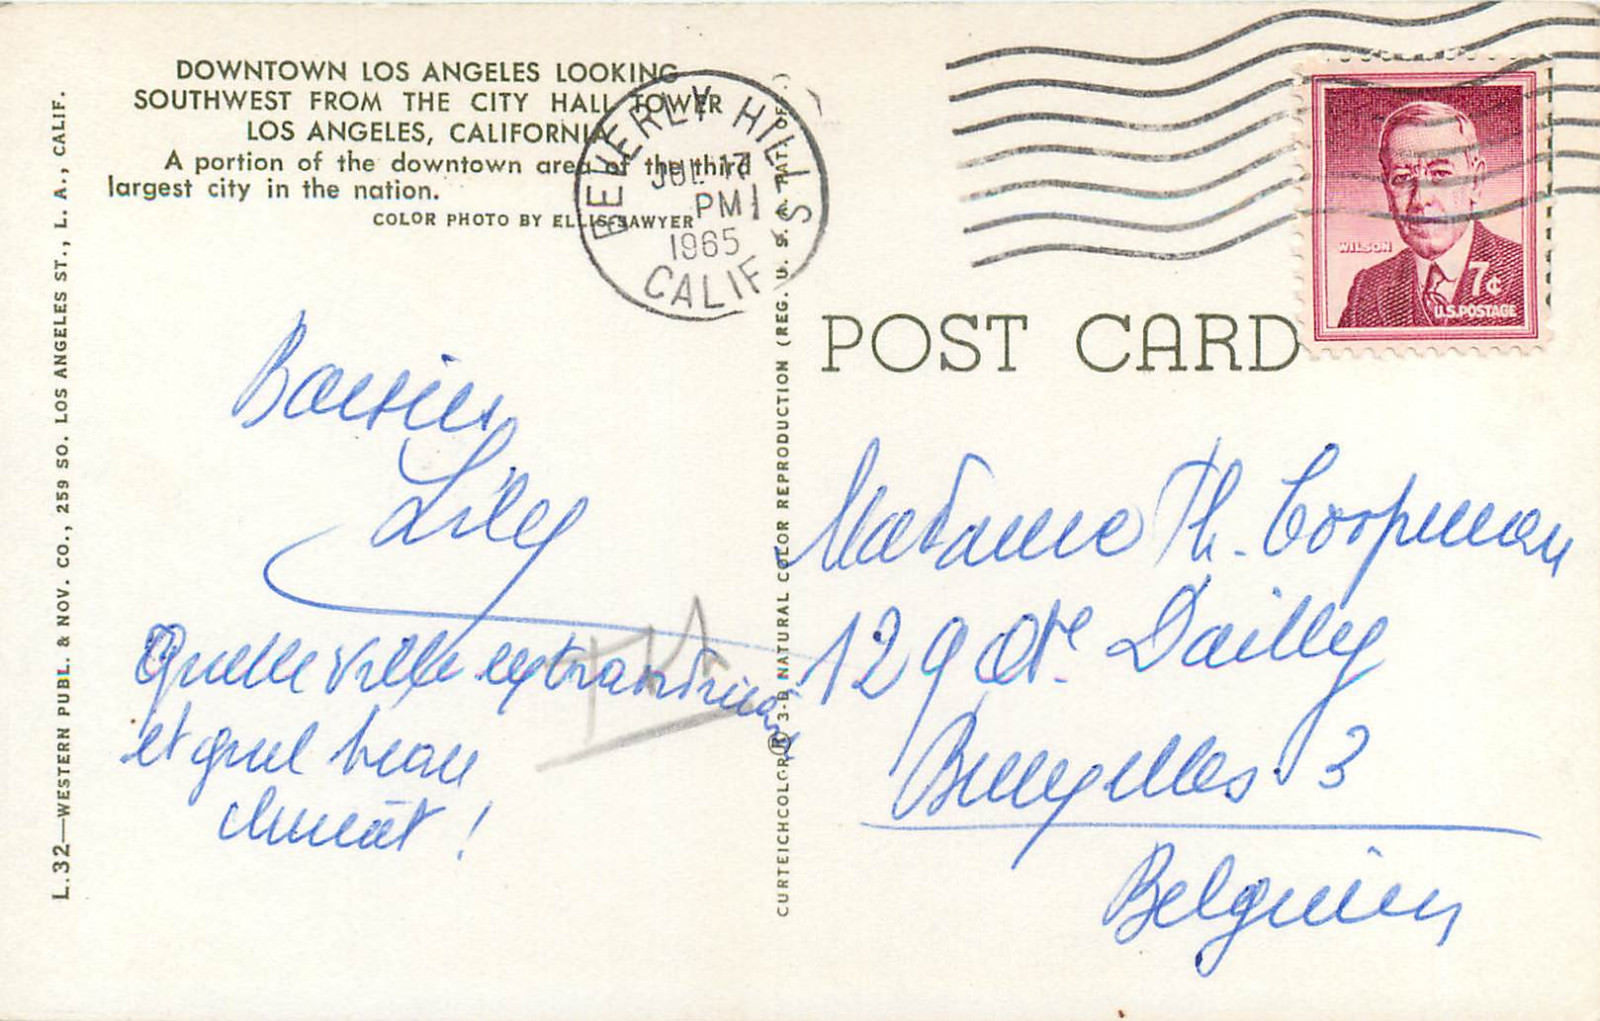 DOWNTOWN LOS ANGELES LOOKING
SOUTHWEST FROM THE CITY HALL TOWER
LOS ANGELES, CALIFORNIA
A portion of the downtown area of the third
largest city in the nation.
COLOR PHOTO BY ELLIS SAWYER
BEVERLY HILLS
JUL 17
PM
1965
CALIF
WILSON
7¢
U.S. POSTAGE
POST CARD
L.32—WESTERN PUBL. & NOV. CO., 259 SO. LOS ANGELES ST., L. A., CALIF.
CURTEICHCOLOR® 3-D NATURAL COLOR REPRODUCTION (REG. U. S. A. PAT. OFF.)
Baisers
Lily
Quelle ville extraordinaire
et quel beau
climat !
Madame Th. Coopman
129 Dailly
Bruxelles 3
Belgium